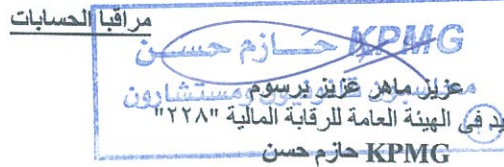 مراقبا الحسابات
KPMG حازم حسن
محاسبون قانونيون ومستشارون
عزيز ماهر عزيز برسوم
يد في الهيئة العامة للرقابة المالية "٢٢٨"
KPMG حازم حسن